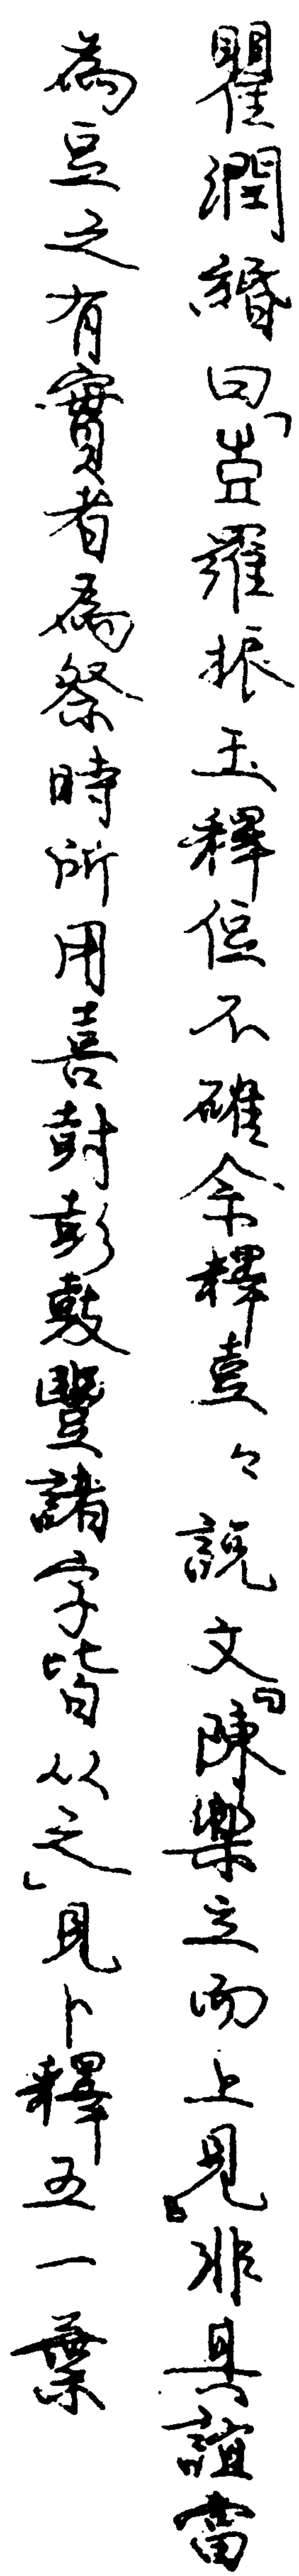 瞿潤緡曰「壴羅振玉釋偵不確余釋壴々說文『陳樂立而上見』非其誼當
為豆之有實者為祭時所用喜尌彭鼓豐諸字皆从之」見卜釋五一葉